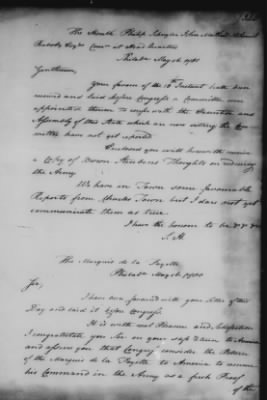 The Honble Philip Schuyler John Mathews & Nath
Peabody Esqrs Come at Head Quarters
Philada May 16 1780
Gentlemen,
your favour of the 13th Instant hath been
received and laid before Congress a Committee was
appointed thereon to confer with the Executive and
Assembly of this State which are now sitting the Com
mittee have not yet reported
Enclosed you will herewith receive
a Copy of Baron Steubens Thoughts on reducing
the Army
We have in Town some favourable
Reports from Charles Town but I dare not yet
communicate them as true
I have the honour to be &c &c &c
S. H.
The Marquis de la Fayette
Philada May 16 1780
Sir,
I have been favored with your Letter of this
Day and laid it before Congress
It is with real Pleasure and Satisfaction
I congratulate you Sir on your safe return to America
and assure you that Congress consider the Return
of the Marquis de la Fayette to America to resume
his Command in the Army as a fresh Proof
of the